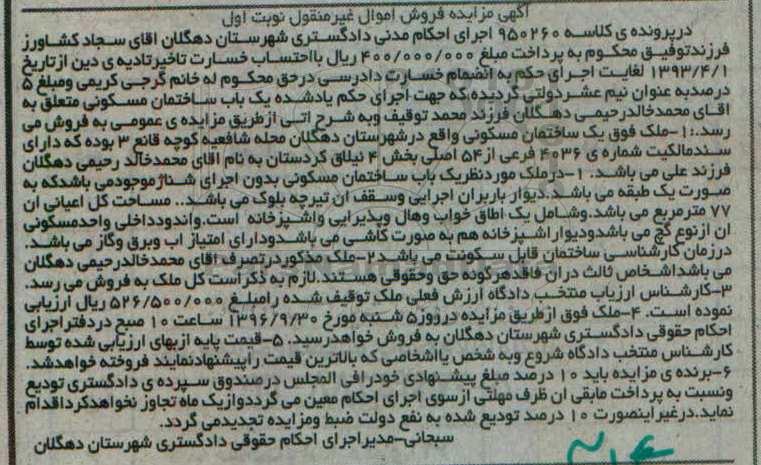 آگهی مزایده فروش اموال غیرمنقول نوبت اول
درپرونده ی کلاسه ۹۵۰۲۶۰ اجرای احکام مدنی دادگستری شهرستان دهگلان اقای سجاد کشاورز
فرزندتوفیق محکوم به پرداخت مبلغ ۴۰۰/۰۰۰/۰۰۰ ریال بااحتساب خسارت تاخیرتادیه ی دین ازتاریخ
۱۳۹۳/۴/۱ لغایت اجرای حکم به انضمام خسارت دادرسی درحق محکوم له خانم گرجی کریمی ومبلغ ۵
درصدبه عنوان نیم عشردولتی گردیده که جهت اجرای حکم یادشده یک باب ساختمان مسکونی متعلق به
اقای محمدخالدرحیمی دهگلان فرزند محمد توقیف وبه شرح اتی ازطریق مزایده ی عمومی به فروش می
رسد.:۱-ملک فوق یک ساختمان مسکونی واقع درشهرستان دهگلان محله شافعیه کوچه قانع ۳ بوده که دارای
سندمالکیت شماره ی ۴۰۳۶ فرعی از۵۴ اصلی بخش ۴ نیلاق کردستان به نام اقای محمدخالد رحیمی دهگلان
فرزند علی می باشد. ۱-درملک موردنظریک باب ساختمان مسکونی بدون اجرای شناژموجودمی باشدکه به
صورت یک طبقه می باشد.دیوار باربران اجرایی وسقف ان تیرچه بلوک می باشد.. مساحت کل اعیانی ان
۷۷ مترمربع می باشد.وشامل یک اطاق خواب وهال وپذیرایی واشپزخانه است.واندودداخلی واحدمسکونی
ان ازنوع گچ می باشدودیواراشپزخانه هم به صورت کاشی می باشدودارای امتیاز اب وبرق وگاز می باشد.
درزمان کارشناسی ساختمان قابل سکونت می باشد۲-ملک مذکوردرتصرف اقای محمدخالدرحیمی دهگلان
می باشداشخاص ثالث دران فاقدهرگونه حق وحقوقی هستند.لازم به ذکراست کل ملک به فروش می رسد.
۳-کارشناس ارزیاب منتخب دادگاه ارزش فعلی ملک توقیف شده رامبلغ ۵۲۶/۵۰۰/۰۰۰ ریال ارزیابی
نموده است. ۴-ملک فوق ازطریق مزایده درروز۵ شنبه مورخ ۱۳۹۶/۹/۳۰ ساعت ۱۰ صبح دردفتراجرای
احکام حقوقی دادگستری شهرستان دهگلان به فروش خواهدرسید. ۵-قیمت پایه ازبهای ارزیابی شده توسط
کارشناس منتخب دادگاه شروع وبه شخص یااشخاصی که بالاترین قیمت راپیشنهادنمایند فروخته خواهدشد.
۶-برنده ی مزایده باید ۱۰ درصد مبلغ پیشنهادی خودرافی المجلس درصندوق سپرده ی دادگستری تودیع
ونسبت به پرداخت مابقی ان ظرف مهلتی ازسوی اجرای احکام معین می گرددوازیک ماه تجاوز نخواهدکرداقدام
نماید.درغیراینصورت ۱۰ درصد تودیع شده به نفع دولت ضبط ومزایده تجدیدمی گردد.
سبحانی-مدیراجرای احکام حقوقی دادگستری شهرستان دهگلان